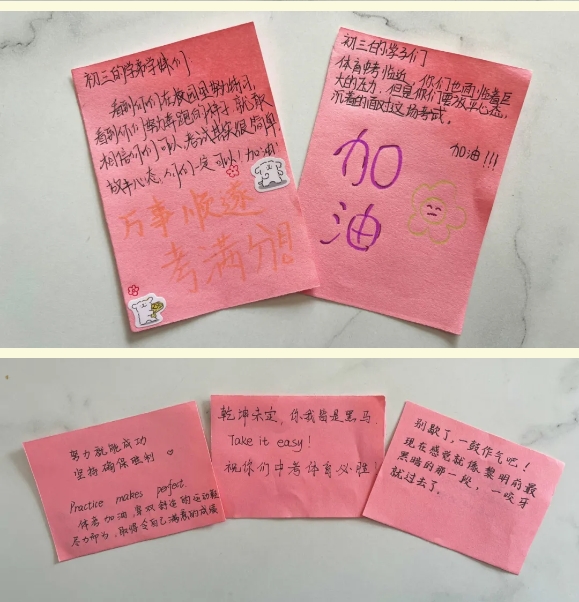 初三的学弟学妹们
看到你们在校园里努力练习
看到你们努力奔跑的样子，就敢
相信你们可以，考试其实很简单，
放平心态，你们一定可以！加油！
万事顺遂
考满分！
初三的学子们
体育中考临近，你们也面临着巨
大的压力，但是你们要放平心态，
沉着的面对这场考试。
加油！！！
加
油
努力就能成功
坚持确保胜利
Practice makes perfect.
体考加油，穿双舒适的运动鞋
尽力即为，取得令自己满意的成绩
乾坤未定，你我皆是黑马.
Take it easy!
祝你们中考体育必胜
别歇了，一鼓作气吧！
现在感觉就像黎明前最
黑暗的那一段，一咬牙
就过去了。